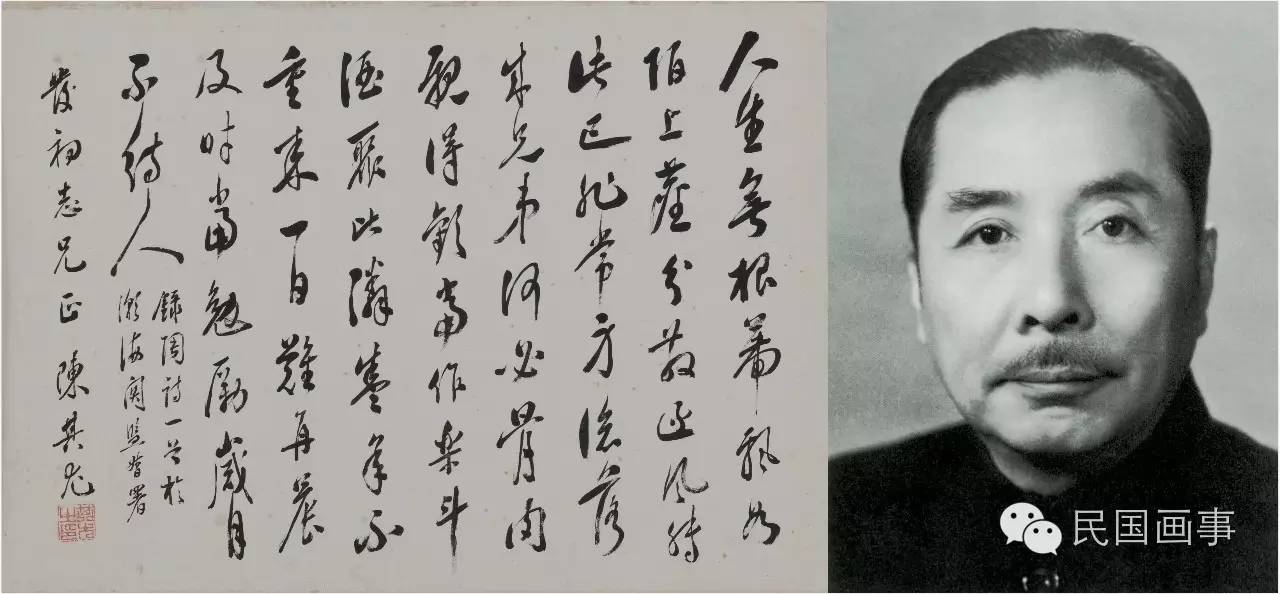 人生無根蒂飄如
陌上塵分散逐风轉
此已非常身落
成兄弟何必骨肉
親得歡當作樂斗
酒聚比鄰盛年不
重来一日難再晨
及时當勉勵歲月
不待人
錄陶詩一首於
潮海関監督署
發初志兄正 陳其尤
民国画事